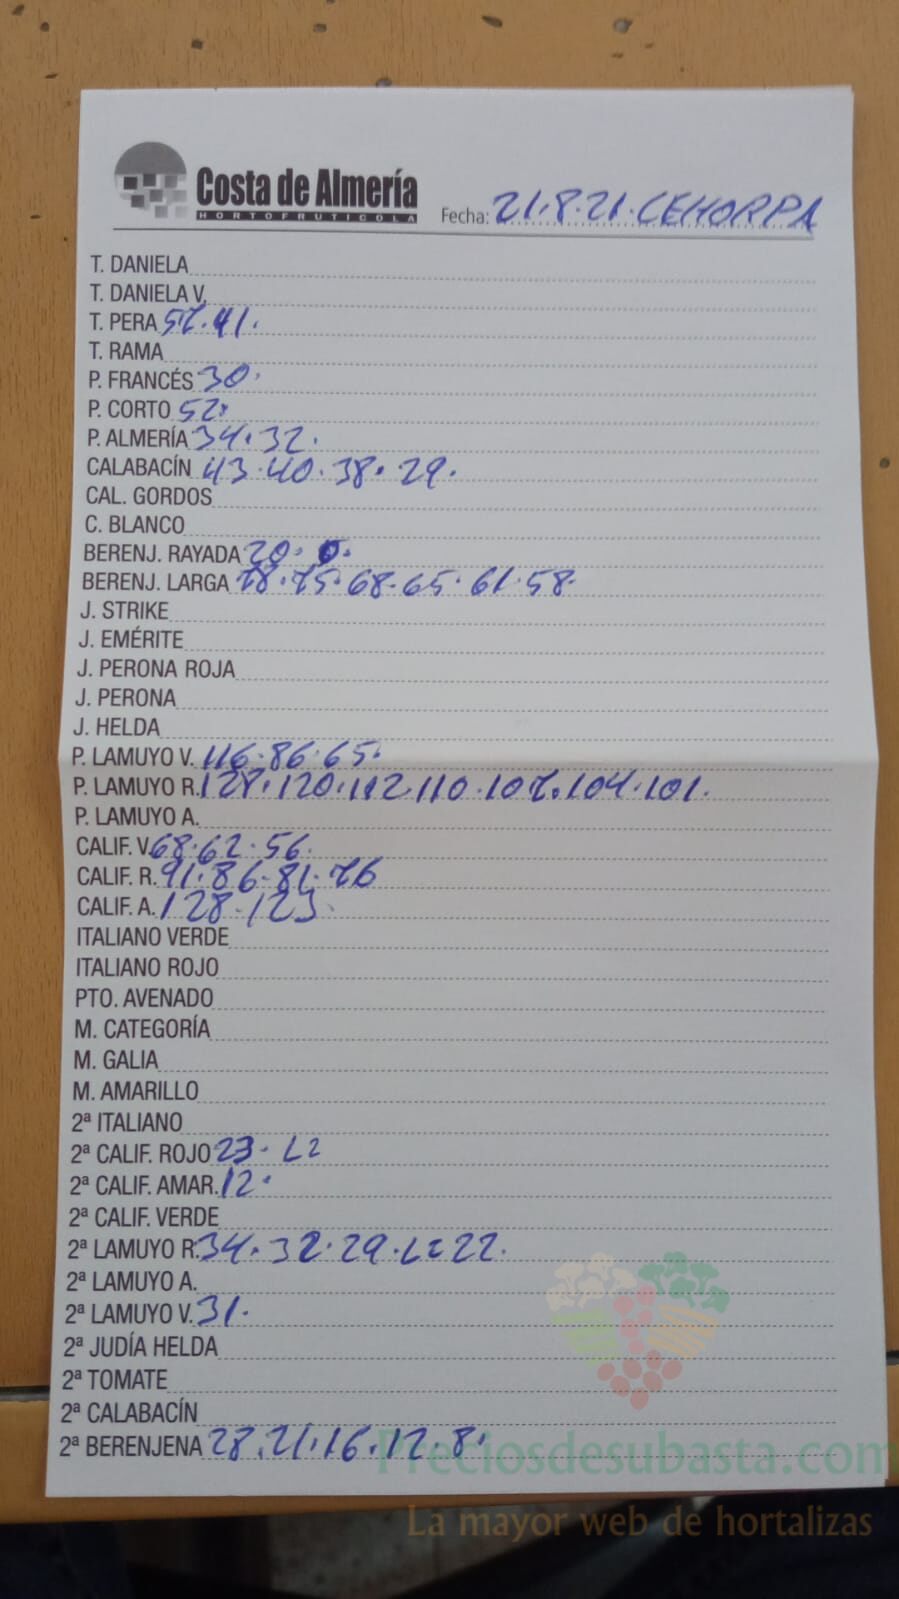 Costa de Almería
HORTOFRUTICOLA
Fecha: 21.8.21. CEHORPA
T. DANIELA
T. DANIELA V.
T. PERA 57. 41.
T. RAMA
P. FRANCÉS 30.
P. CORTO 52.
P. ALMERÍA 34. 32.
CALABACÍN 43. 40. 38. 29.
CAL. GORDOS
C. BLANCO
BERENJ. RAYADA 20.
BERENJ. LARGA 78. 75. 68. 65. 61. 58.
J. STRIKE
J. EMÉRITE
J. PERONA ROJA
J. PERONA
J. HELDA
P. LAMUYO V. 116. 86. 65.
P. LAMUYO R. 128. 120. 112. 110. 107. 104. 101.
P. LAMUYO A.
CALIF. V. 68. 62. 56.
CALIF. R. 91. 86. 81. 76
CALIF. A. 128. 123.
ITALIANO VERDE
ITALIANO ROJO
PTO. AVENADO
M. CATEGORÍA
M. GALIA
M. AMARILLO
2ª ITALIANO
2ª CALIF. ROJO 23.
2ª CALIF. AMAR. 12.
2ª CALIF. VERDE
2ª LAMUYO R. 34. 32. 29. 22.
2ª LAMUYO A.
2ª LAMUYO V. 31.
2ª JUDÍA HELDA
2ª TOMATE
2ª CALABACÍN
2ª BERENJENA 28. 21. 16. 12. 8.
Preciosdesubasta.com
La mayor web de hortalizas